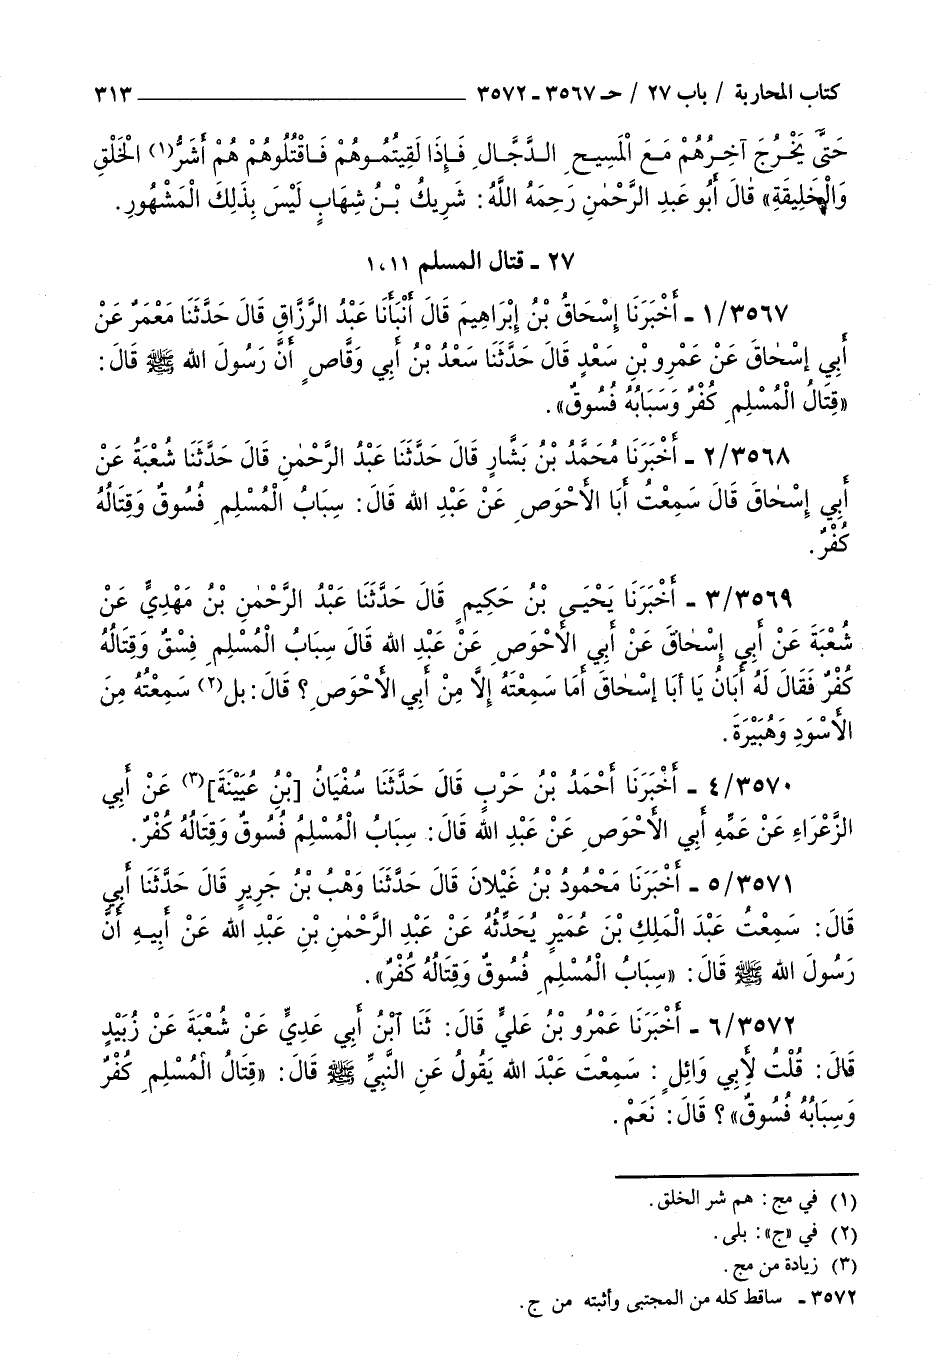 كتاب المحاربة / باب ٢٧ / حـ ٣٥٦٧ ـ ٣٥٧٢ ٣١٣
حَتَّى يَخْرُجَ آخِرُهُمْ مَعَ الْمَسِيحِ الدَّجَّالِ فَإِذَا لَقِيتُمُوهُمْ فَاقْتُلُوهُمْ هُمْ أَشَرُّ(١) الْخَلْقِ
وَالْخَلِيقَةِ» قَالَ أَبُو عَبدِ الرَّحْمٰنِ رَحِمَهُ اللَّهُ: شَرِيكُ بْنُ شِهَابٍ لَيْسَ بِذَلِكَ الْمَشْهُورِ.
٢٧ ـ قتال المسلم ١،١١
١/٣٥٦٧ ـ أَخْبَرَنَا إِسْحَاقُ بْنُ إِبْرَاهِيمَ قَالَ أَنْبَأَنَا عَبْدُ الرَّزَّاقِ قَالَ حَدَّثَنَا مَعْمَرٌ عَنْ
أَبِي إِسْحٰاقَ عَنْ عَمْرِو بْنِ سَعْدٍ قَالَ حَدَّثَنَا سَعْدُ بْنُ أَبِي وَقَّاصٍ أَنَّ رَسُولَ الله ﷺ قَالَ:
«قِتَالُ الْمُسْلِمِ كُفْرٌ وَسَبَابُهُ فُسُوقٌ».
٢/٣٥٦٨ ـ أَخْبَرَنَا مُحَمَّدُ بْنُ بَشَّارٍ قَالَ حَدَّثَنَا عَبْدُ الرَّحْمٰنِ قَالَ حَدَّثَنَا شُعْبَةُ عَنْ
أَبِي إِسْحٰاقَ قَالَ سَمِعْتُ أَبَا الأَحْوَصِ عَنْ عَبْدِ الله قَالَ: سِبَابُ الْمُسْلِمِ فُسُوقٌ وَقِتَالُهُ
كُفْرٌ.
٣/٣٥٦٩ ـ أَخْبَرَنَا يَحْيَى بْنُ حَكِيمٍ قَالَ حَدَّثَنَا عَبْدُ الرَّحْمٰنِ بْنُ مَهْدِيٍّ عَنْ
شُعْبَةَ عَنْ أَبِي إِسْحَاقَ عَنْ أَبِي الأَحْوَصِ عَنْ عَبْدِ الله قَالَ سِبَابُ الْمُسْلِمِ فِسْقٌ وَقِتَالُهُ
كُفْرٌ فَقَالَ لَهُ أَبَانُ يَا أَبَا إِسْحَاقَ أَمَا سَمِعْتَهُ إِلَّا مِنْ أَبِي الأَحْوَصِ؟ قَالَ: بل(٢) سَمِعْتُهُ مِنَ
الأَسْوَدِ وَهُبَيْرَةَ.
٤/٣٥٧٠ ـ أَخْبَرَنَا أَحْمَدُ بْنُ حَرْبٍ قَالَ حَدَّثَنَا سُفْيَانُ [بْنُ عُيَيْنَةَ](٣) عَنْ أَبِي
الزَّعْرَاءِ عَنْ عَمِّهِ أَبِي الأَحْوَصِ عَنْ عَبْدِ الله قَالَ: سِبَابُ الْمُسْلِمِ فُسُوقٌ وَقِتَالُهُ كُفْرٌ.
٥/٣٥٧١ ـ أَخْبَرَنَا مَحْمُودُ بْنُ غَيْلَانَ قَالَ حَدَّثَنَا وَهْبُ بْنُ جَرِيرٍ قَالَ حَدَّثَنَا أَبِي
قَالَ: سَمِعْتُ عَبْدَ الْمَلِكِ بْنَ عُمَيْرٍ يُحَدِّثُهُ عَنْ عَبْدِ الرَّحْمٰنِ بْنِ عَبْدِ الله عَنْ أَبِيهِ أَنَّ
رَسُولَ الله ﷺ قَالَ: «سِبَابُ الْمُسْلِمِ فُسُوقٌ وَقِتَالُهُ كُفْرٌ».
٦/٣٥٧٢ ـ أَخْبَرَنَا عَمْرُو بْنُ عَلِيٍّ قَالَ: ثَنَا ابْنُ أَبِي عَدِيٍّ عَنْ شُعْبَةَ عَنْ زُبَيْدٍ
قَالَ: قُلْتُ لأَبِي وَائِلٍ: سَمِعْتَ عَبْدَ الله يَقُولُ عَنِ النَّبِيِّ ﷺ قَالَ: «قِتَالُ الْمُسْلِمِ كُفْرٌ
وَسِبَابُهُ فُسُوقٌ»؟ قَالَ: نَعَمْ.
(١) في مج: هم شر الخلق.
(٢) في «ج»: بلى.
(٣) زيادة من مج.
٣٥٧٢ ـ ساقط كله من المجتبى وأثبته من ج.